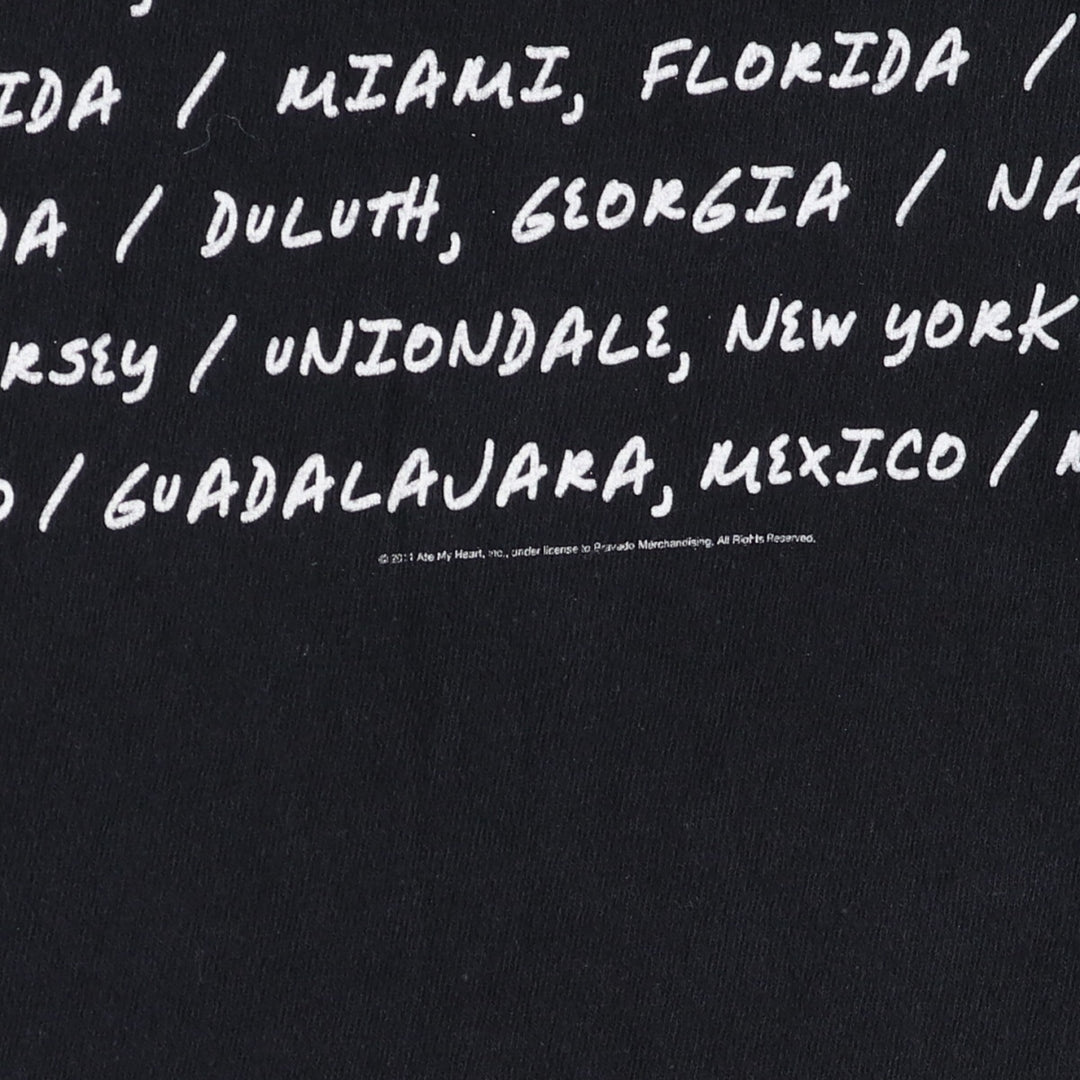 IDA / MIAMI, FLORIDA /
DA / DULUTH, GEORGIA / NA
RSEY / UNIONDALE, NEW YORK
O / GUADALAJARA, MEXICO / M
© 2011 Ate My Heart, Inc., under license to Bravado Merchandising. All Rights Reserved.